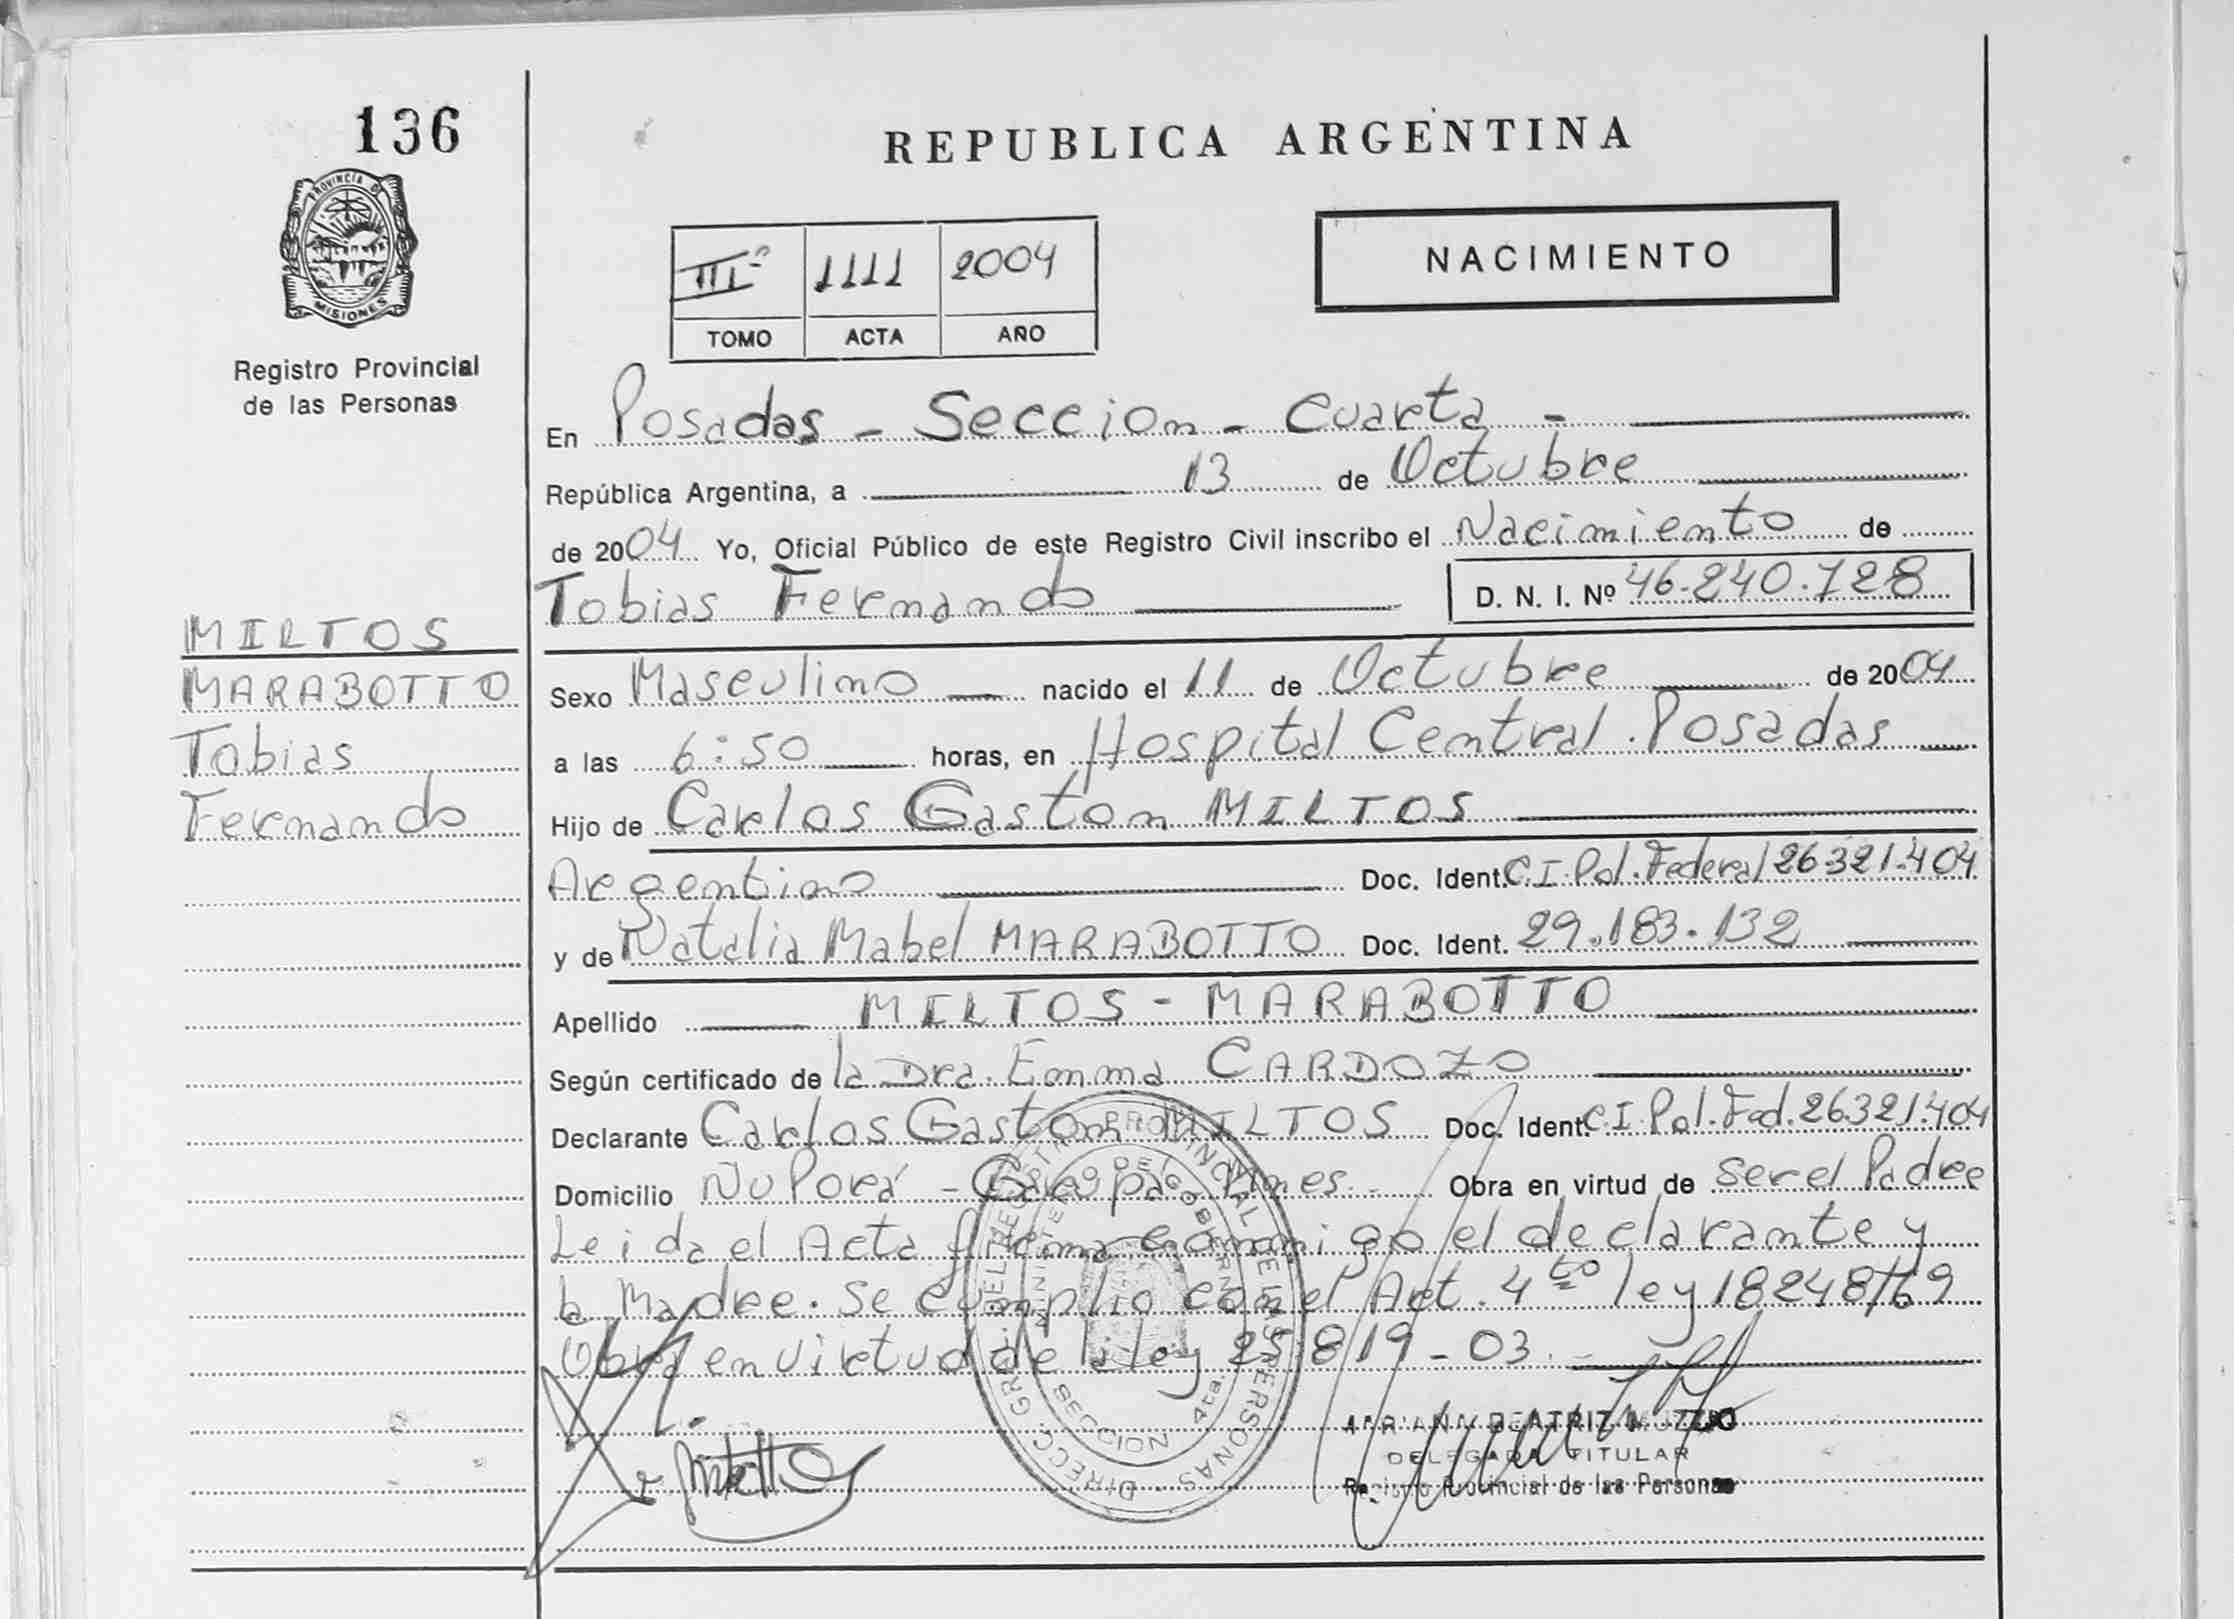 136
PROVINCIA DE
MISIONES
Registro Provincial
de las Personas
REPUBLICA ARGENTINA
NACIMIENTO
IIIº 1111 2004
TOMO ACTA AÑO
En Posadas - Seccion - Cuarta -
República Argentina, a 13 de Octubre
de 2004 Yo, Oficial Público de este Registro Civil inscribo el Nacimiento de
Tobias Fernando D. N. I. Nº 46.240.728
MILTOS
MARABOTTO
Tobias
Fernando
Sexo Masculino nacido el 11 de Octubre de 2004
a las 6:50 horas, en Hospital Central. Posadas
Hijo de Carlos Gaston MILTOS
Argentino Doc. Ident. C.I. Pol. Federal 26.321.404
y de Natalia Mabel MARABOTTO Doc. Ident. 29.183.132
Apellido MILTOS - MARABOTTO
Según certificado de la Dra. Emma CARDOZO
Declarante Carlos Gaston MILTOS Doc. Ident. C.I. Pol. Fed. 26.321.404
Domicilio Ñu Porá - Garupá - Mnes. - Obra en virtud de ser el Padre
Leida el Acta firma conmigo el declarante y
la Madre. Se cumplio con el Art. 4to ley 18248/69
Obra en virtud de la ley 25.819 - 03. -
DIRECC. GRAL. DEL REGISTRO PROVINCIAL DE LAS PERSONAS
MINISTERIO DEL GOBIERNO
SECCION 4ta.
BEATRIZ MUZZIO
DELEGADA TITULAR
Registro Provincial de las Personas